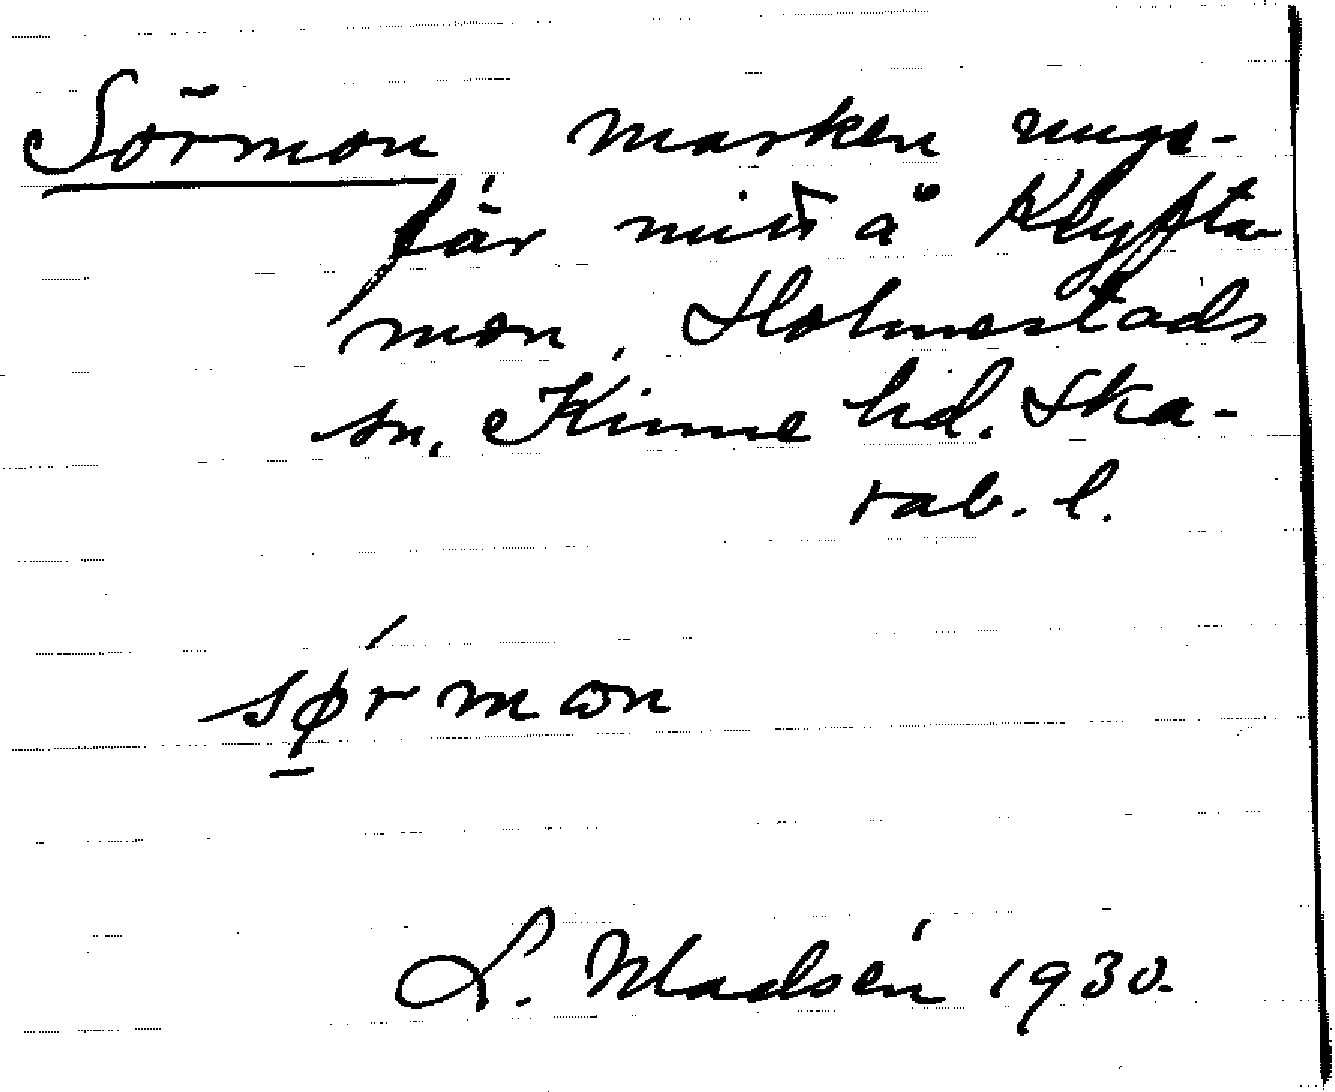 Sörmon, marken unge-
fär mitt å Klyfta-
mon, Holmestads
sn, Kinne hd. Ska-
rab. l.
sørmon
L. Madsén 1930.